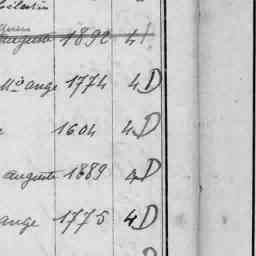 Célestin
auguste 1892 4
Mie ange 1774 4 D
1604 4 D
auguste 1889 4 D
ange 1775 4 D